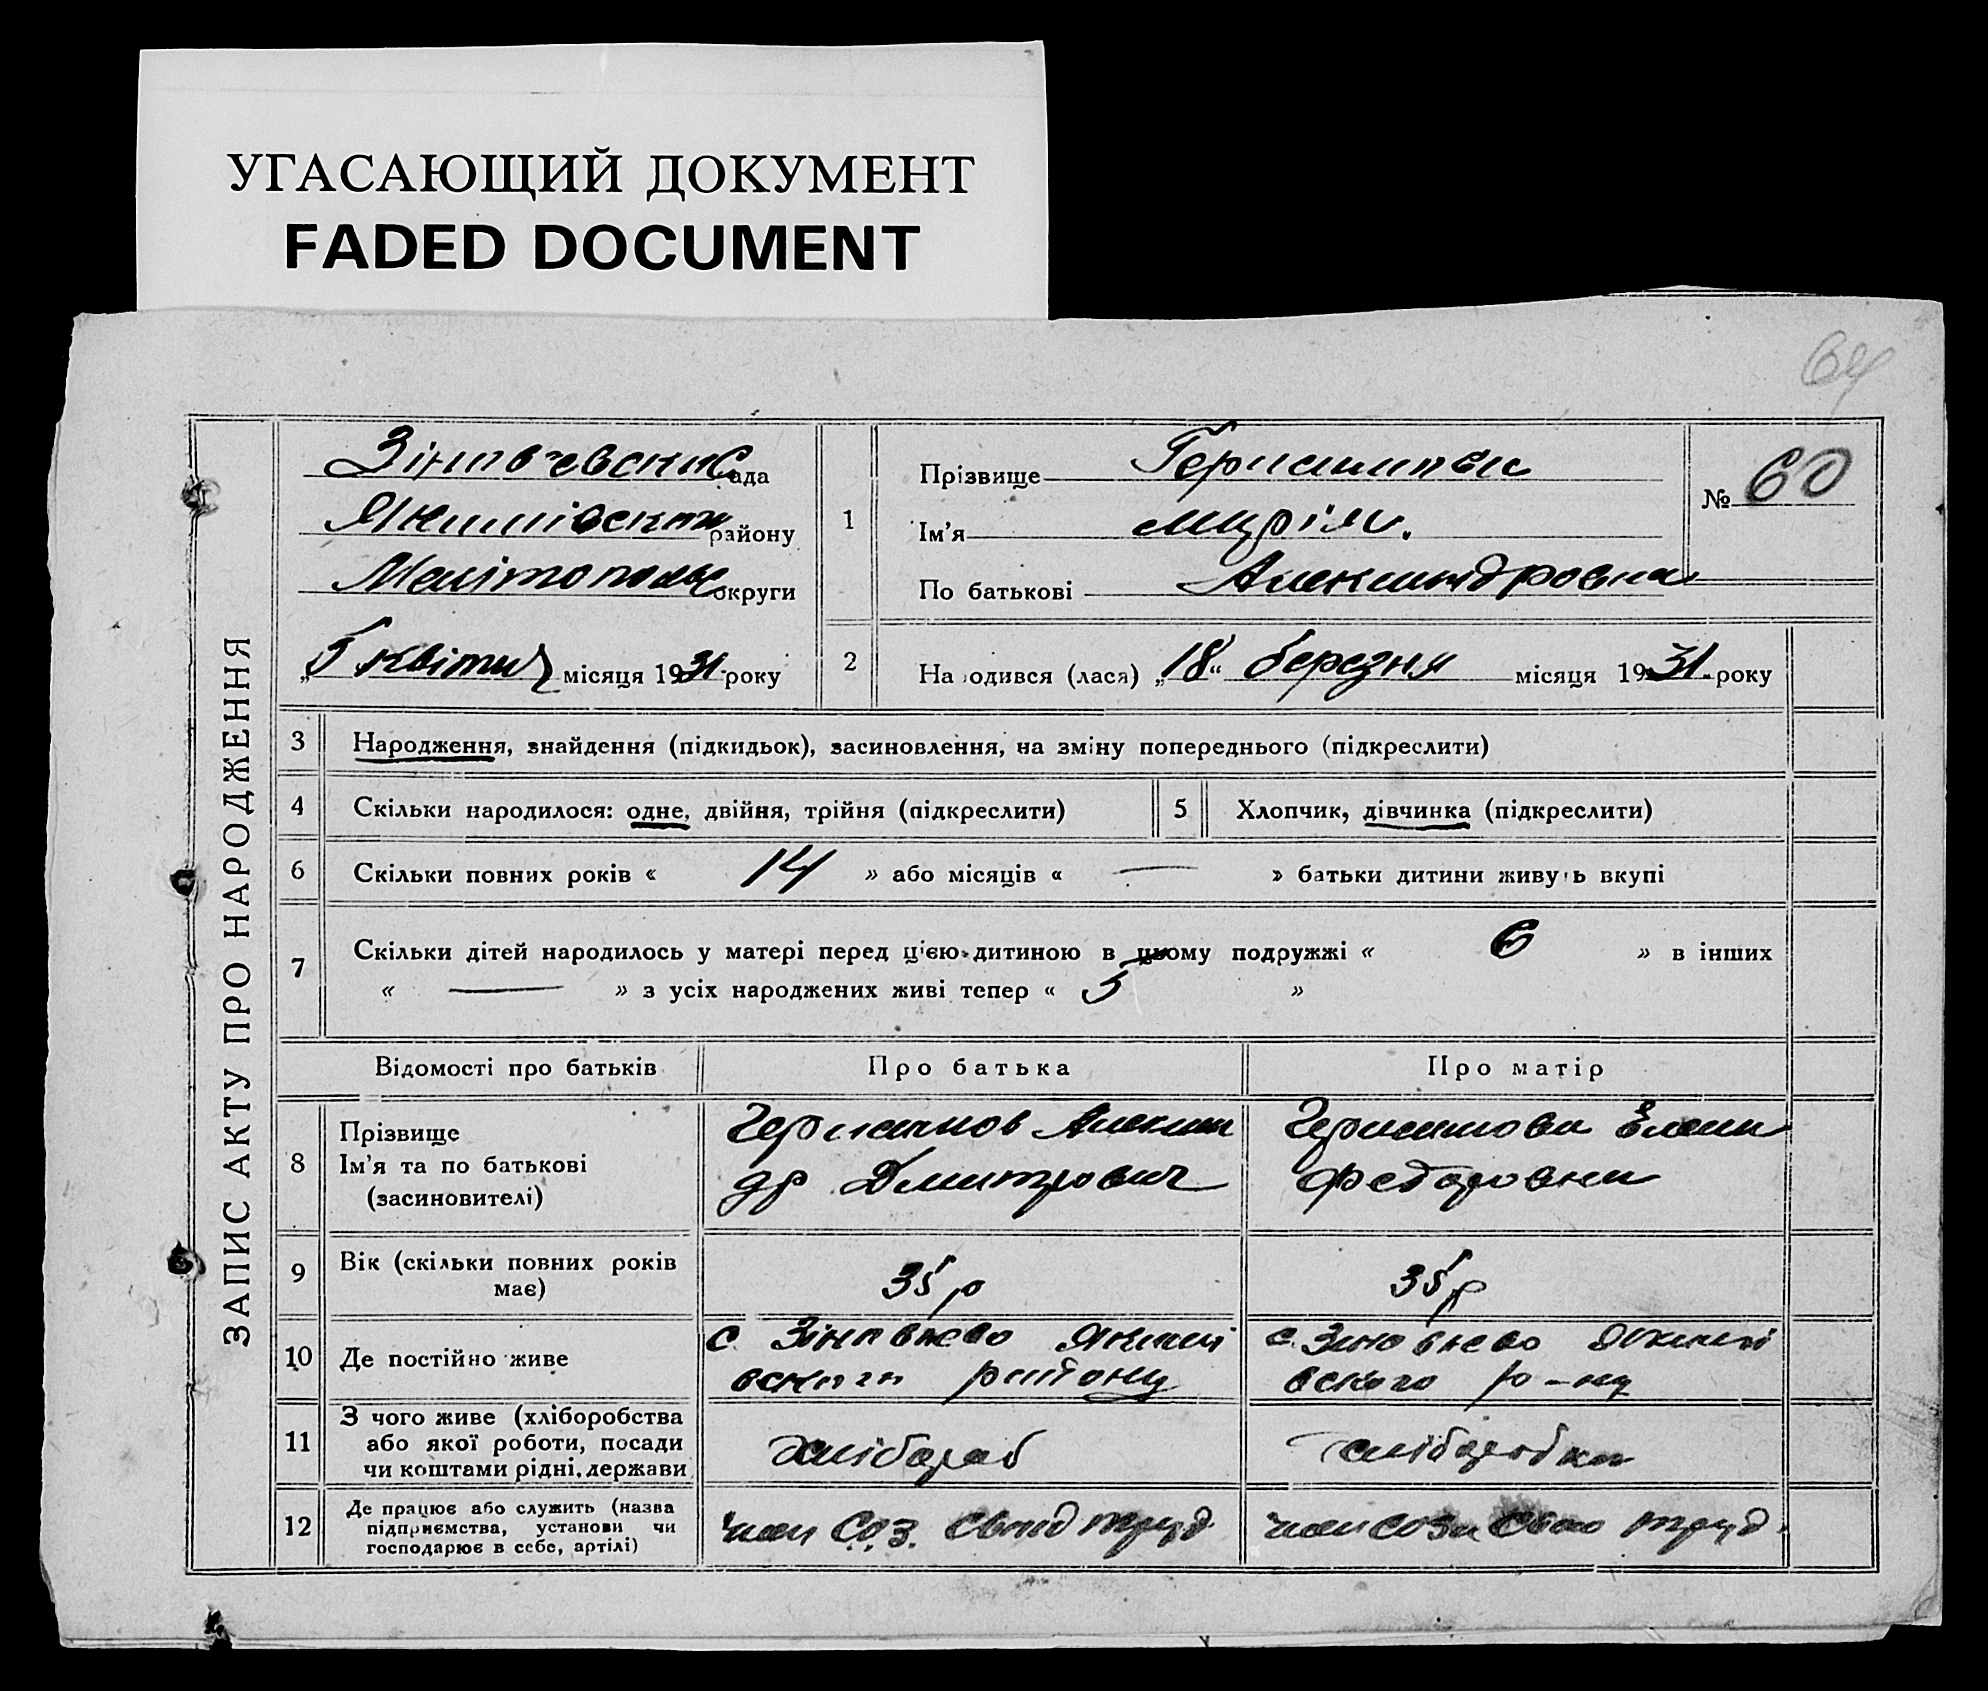 УГАСАЮЩИЙ ДОКУМЕНТ
FADED DOCUMENT
64
ЗАПИС АКТУ ПРО НАРОДЖЕННЯ
Зіновʼєвська рада
Якимівськ району
Мелітополь округи
„5 квітня місяця 1931 року
1
Прізвище Герасимова
Ім'я Марія.
По батькові Александровна
№ 60
2
На одився (лася) „18“ березня місяця 1931 року
3 Народження, знайдення (підкидьок), засиновлення, на зміну попереднього (підкреслити)
4 Скільки народилося: одне, двійня, трійня (підкреслити) 5 Хлопчик, дівчинка (підкреслити)
6 Скільки повних років « 14 » або місяців « — » батьки дитини живуть вкупі
7 Скільки дітей народилось у матері перед цією дитиною в цьому подружжі « 6 » в інших
« — » з усіх народжених живі тепер « 5 »
Відомості про батьків Про батька Про матір
8
Прізвище
Ім'я та по батькові
(засиновителі)
Герасимов Алексан
др Дмитрович
Герасимова Елена
Федоровна
9
Вік (скільки повних років
має)
35 р
35 р
10 Де постійно живе
с Зіновьєво Якимі
вского району
с. Зиновьево Якимі
вского р-ну
11
З чого живе (хліборобства
або якої роботи, посади
чи коштами рідні, держави
хлібороб
хліборобка
12
Де працює або служить (назва
підприємства, установи чи
господарює в себе, артілі)
член СОЗ. Свой труд
член СОЗа Свой труд.